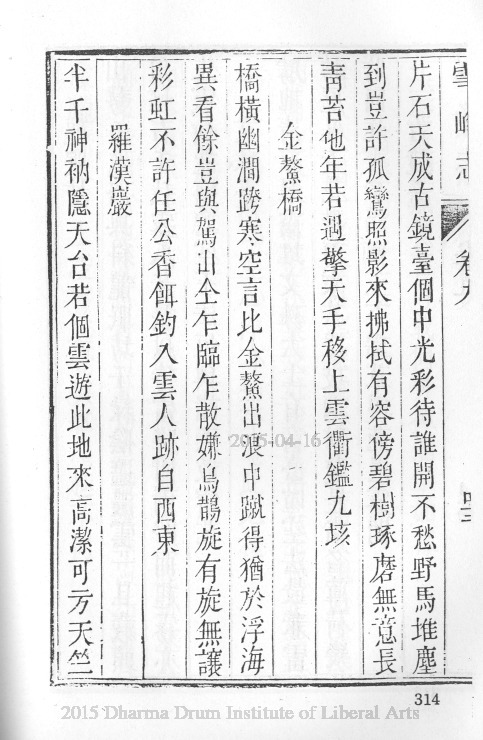 雪峰志 卷九
片石天成古鏡臺個中光彩待誰開不愁野馬堆塵
到豈許孤鸞照影來拂拭有容傍碧樹琢磨無意長
靑苔他年若遇擎天手移上雲衢鑑九垓
金鰲橋
橋橫幽澗跨寒空言比金鰲出浪中蹴得猶於浮海
異看餘豈與駕山仝乍臨乍散嫌烏鵲旋有旋無讓
彩虹不許任公香餌釣入雲人跡自西東
羅漢巖
半千神衲隱天台若個雲遊此地來高潔可方天竺
2015-04-16
314
2015 Dharma Drum Institute of Liberal Arts